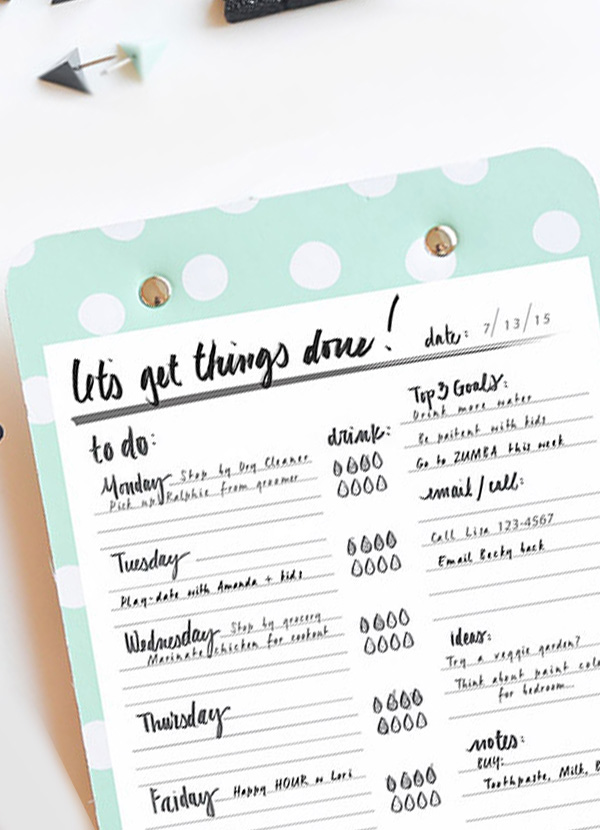 let's get things done!
date: 7/13/15
to do:
drink:
Monday Stop by Dry Cleaner
Pick up Ralphie from groomer
Tuesday
Play-date with Amanda + kids
Wednesday Stop by grocery
Marinate chicken for cookout
Thursday
Friday Happy HOUR w Lori
Top 3 Goals:
Drink more water
Be paitent with kids
Go to ZUMBA this week
email/call:
Call Lisa 123-4567
Email Becky back
ideas:
Try a veggie garden?
Think about paint
for bedroom...
notes:
BUY:
Toothpaste, Milk,